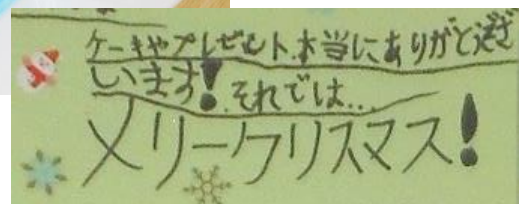 ケーキやプレゼント、本当にありがとうござ
います！それでは...
メリークリスマス！